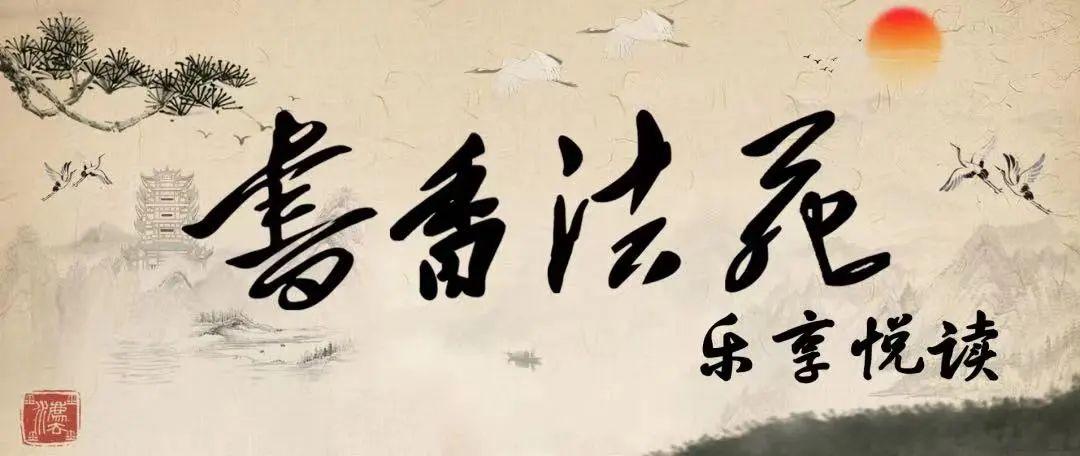 書香法苑
乐享悦读